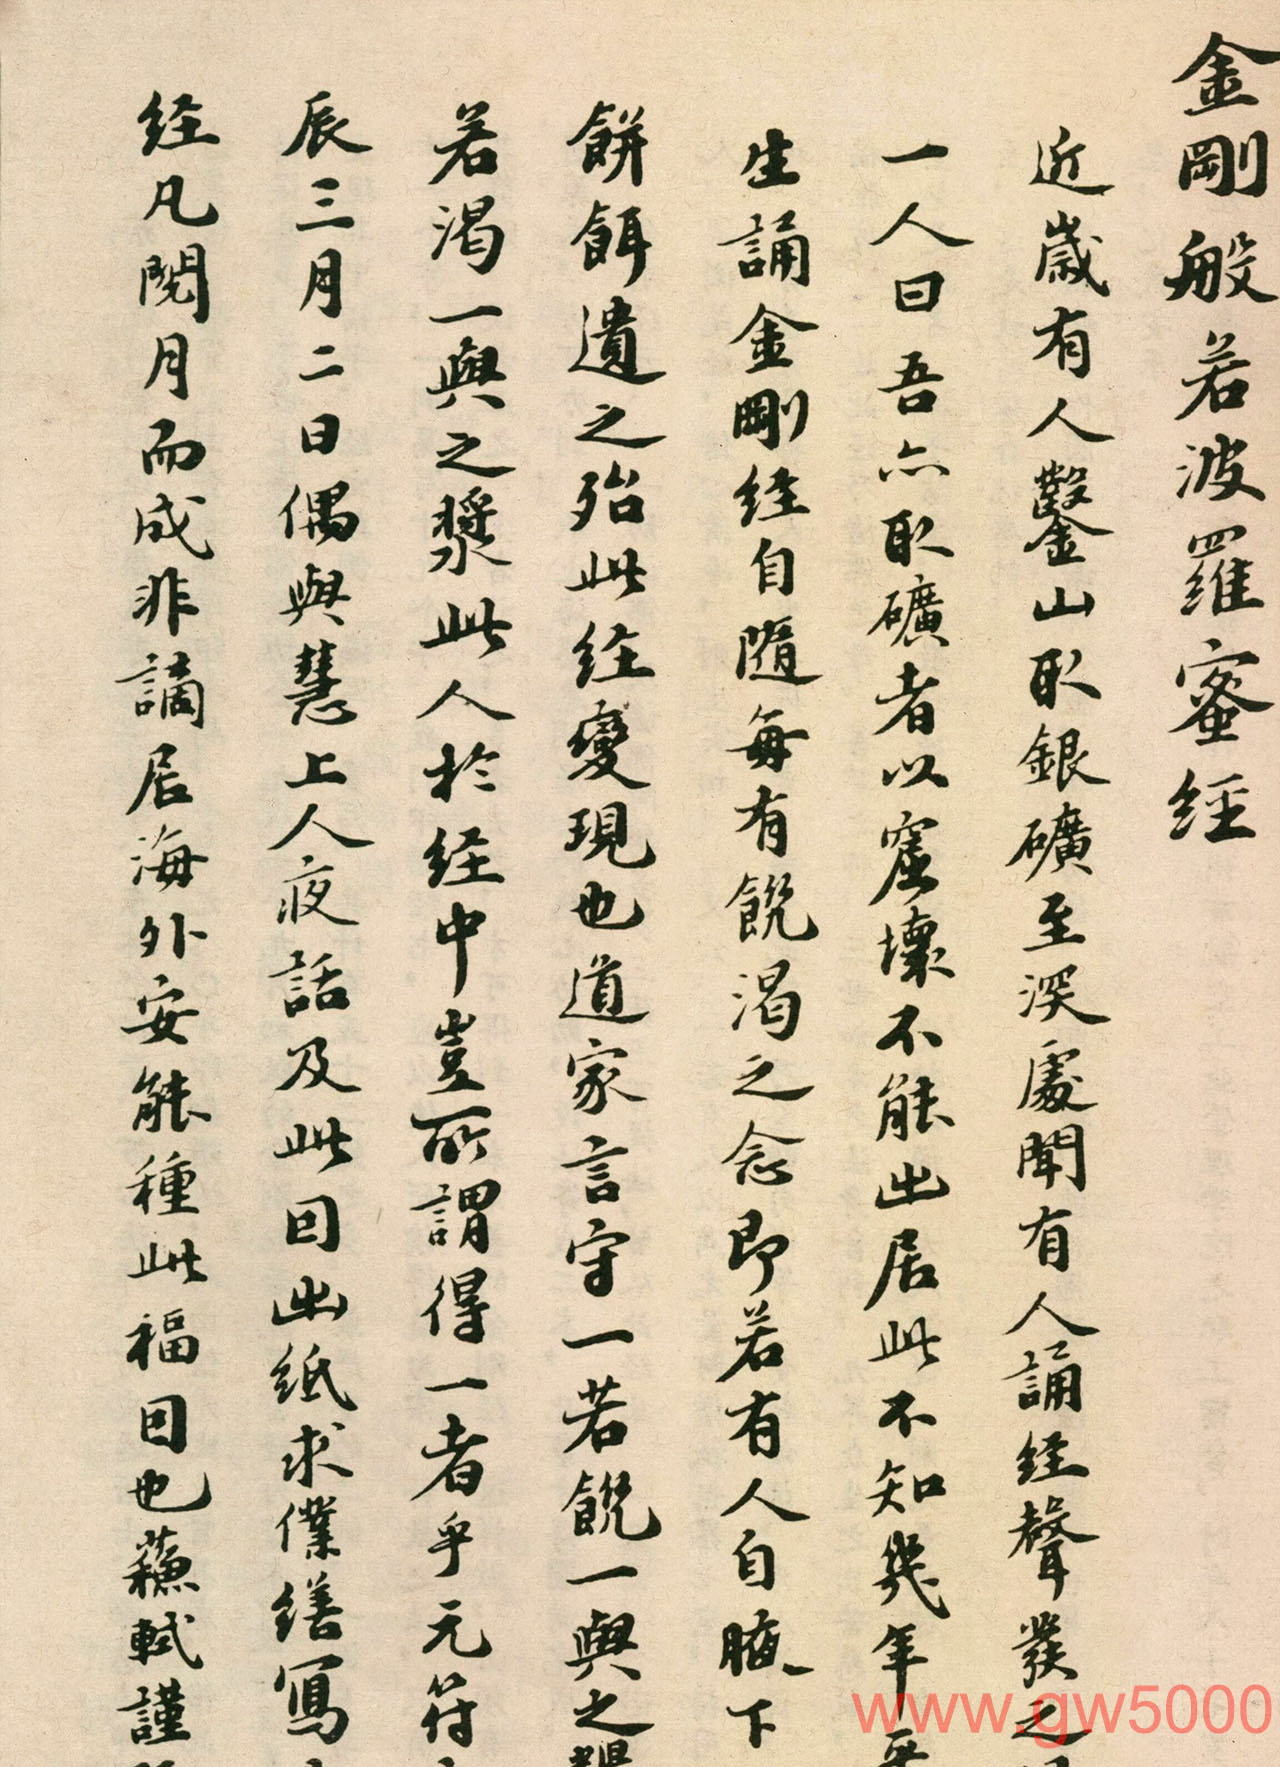 金剛般若波羅蜜経
近嵗有人鑿山取銀礦至深處聞有人誦経聲發之
一人曰吾亦取礦者以窟壞不能出居此不知幾年
生誦金剛経自隨每有飢渴之念即若有人自腋下
餅餌遺之殆此経變現也道家言守一若飢一與之
若渴一與之漿此人於経中豈所謂得一者乎元符
辰三月二日偶與慧上人夜話及此因出紙求僕繕寫
経凡閱月而成非謫居海外安能種此福田也蘓軾謹
www.gw5000